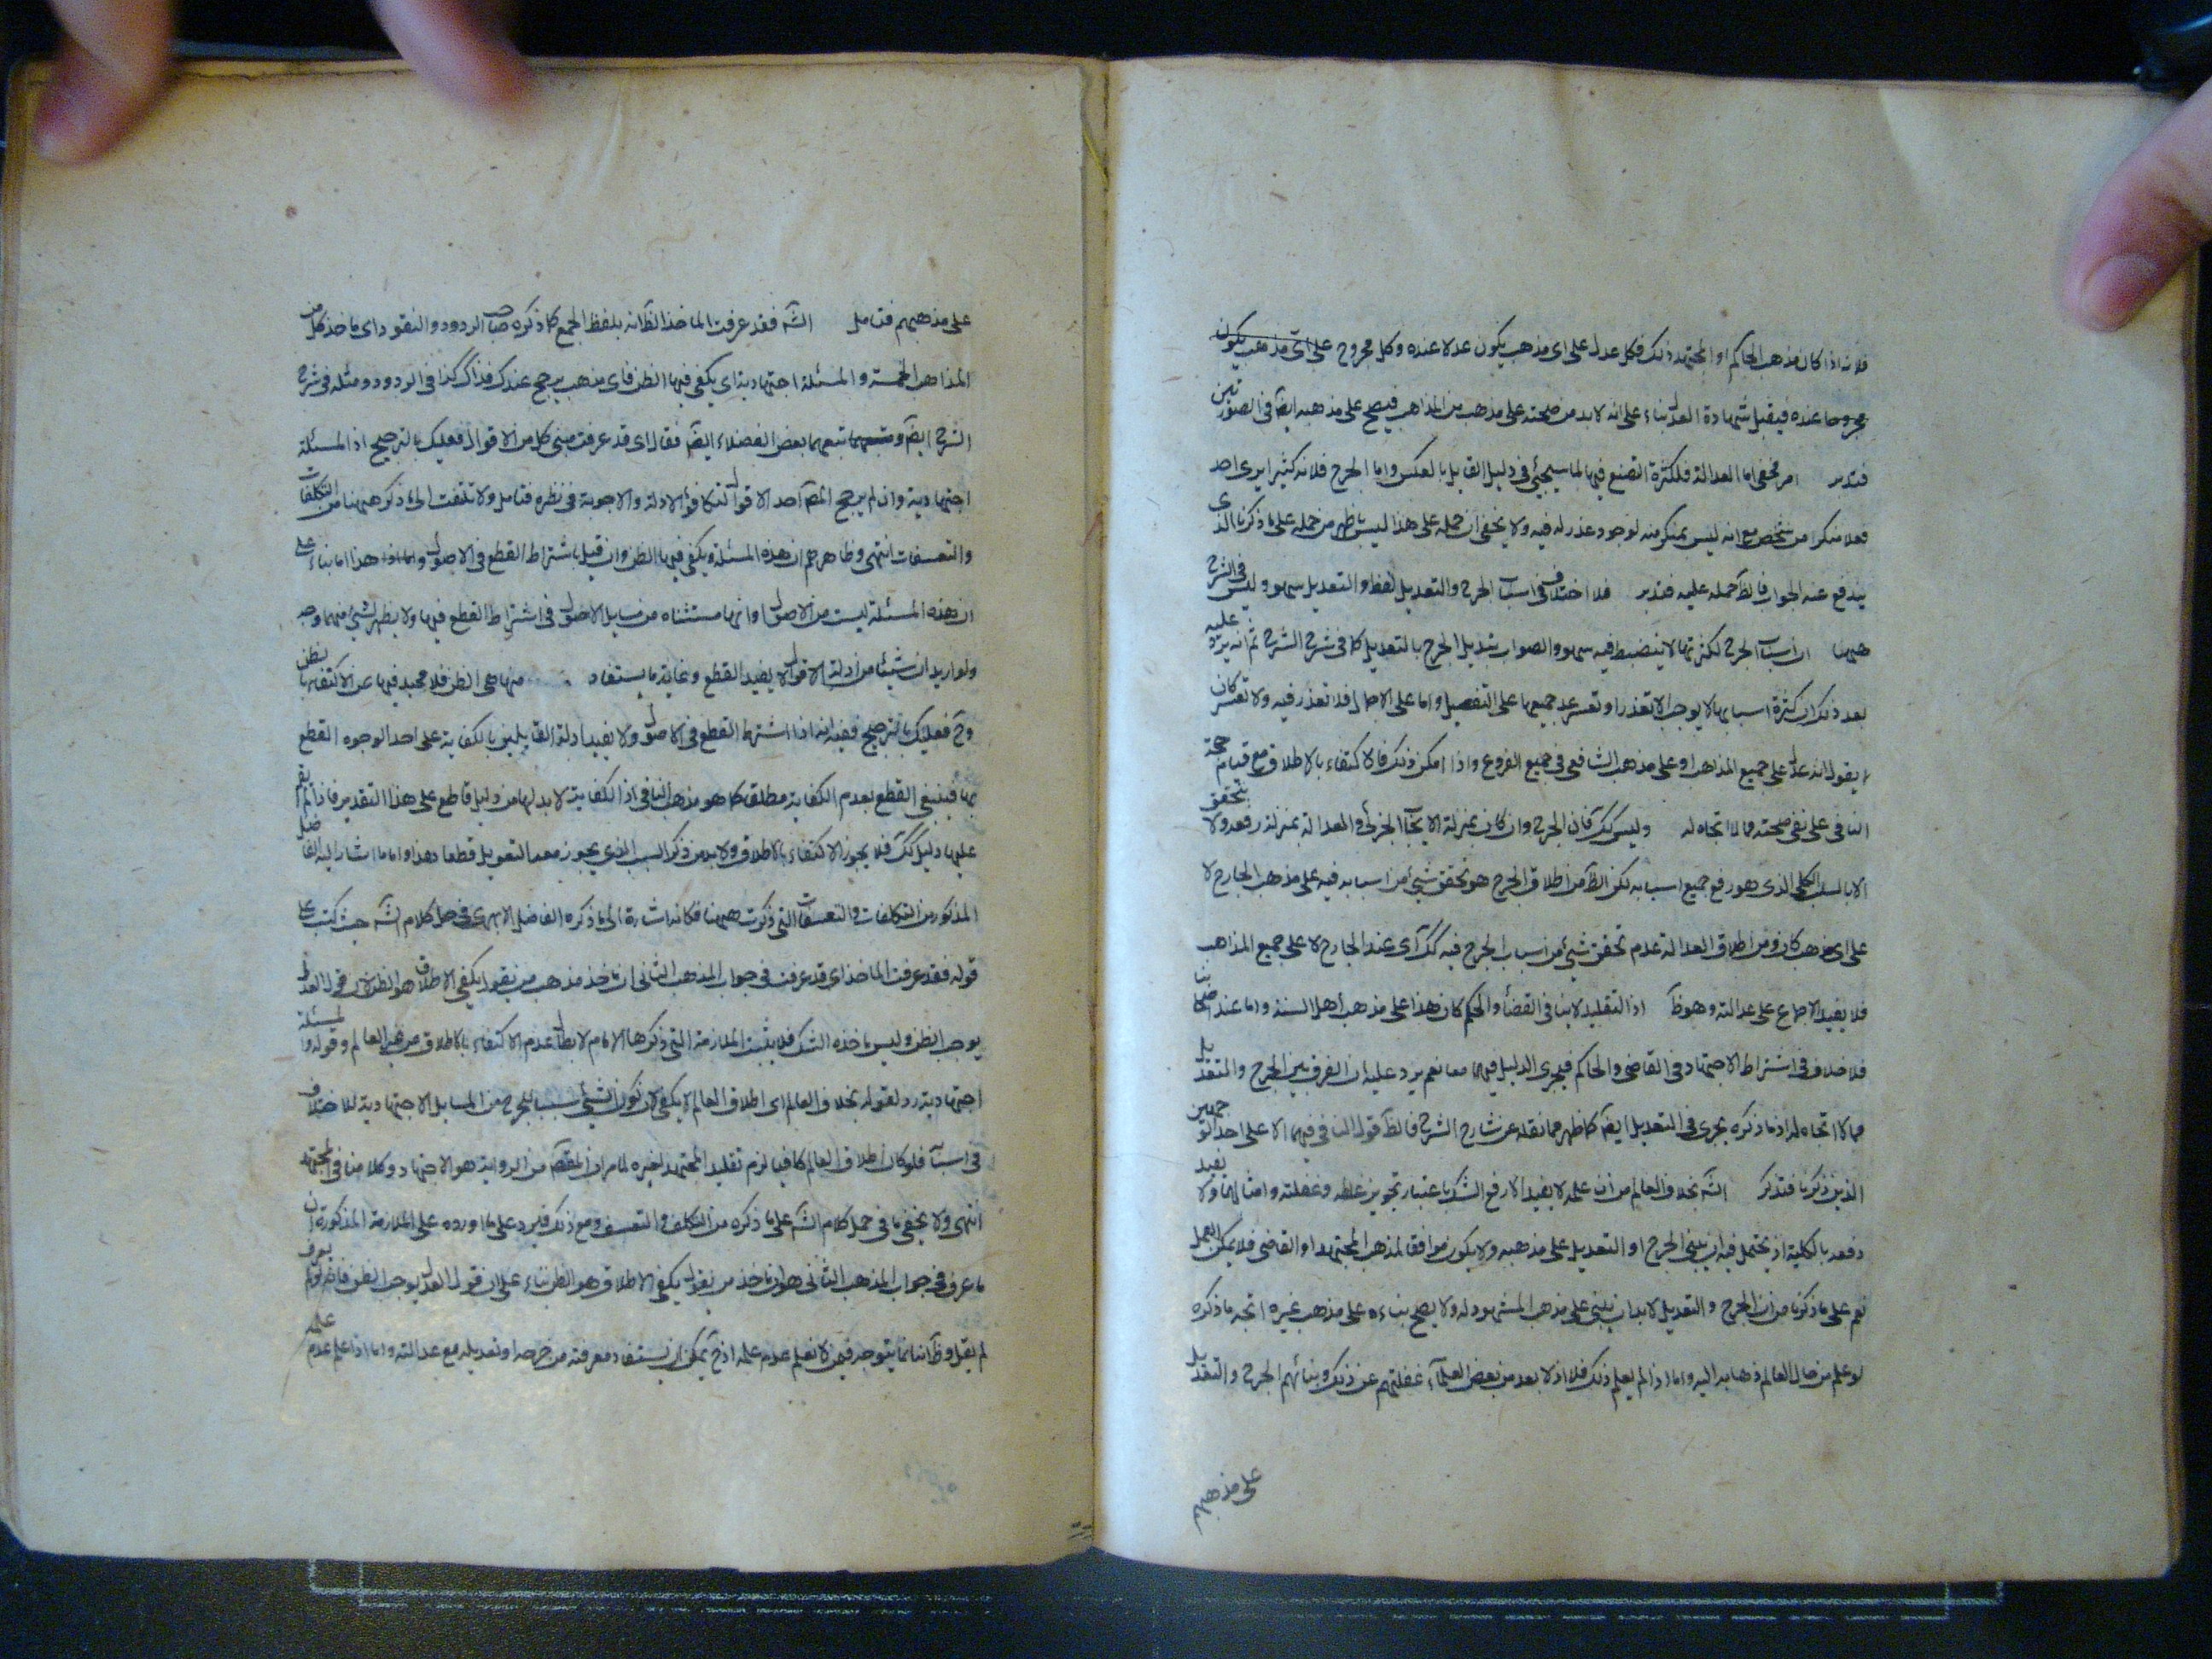 فلانه اذا كان مذهب الحاكم او المجتهد ذلك فكل عدل على اى مذهب يكون عدلا عنده وكل مجروح على اى مذهب يكون
مجروحا عنده فيقبل شهادة العدل بناء على انه لابد من صحته على مذهب من المذاهب فيصح على مذهبه ايضا فى الصورتين
فتدبر امر مخفى اما العدالة فلكثرة التصنع فيها لما سيجئ فى دليل القايل بالعكس واما الجرح فلانه كثيرا يرى احد
فعلا منكرا من شخص مع انه ليس بمنكر منه لوجود عذر له فيه ولا يخفى ان حمله على هذا ليس باظهر من حمله على ما ذكرنا الذى
يندفع عنه الجواب فالظ حمله عليه فتدبر فلا اختلاف فى اسباب الجرح والتعديل لفظ والتعديل سهو وليس فى الشرح
ههنا ان اسباب الجرح لكثرتها لا ينضبط فيه سهو والصواب تبديل الجرح بالتعديل كما فى شرح الشرح ثم انه يرد عليه
بعد ذلك ان كثرة اسبابها لا يوجب الا تعذر او تعسر عد جميعها على التفصيل واما على الاجمال فلا تعذر فيه ولا تعسر كان
يقول انه عدل على جميع المذاهب او على مذهب الشافعى فى جميع الفروع واذا امكن ذلك فالاكتفاء بالاطلاق مع قيام حجة
النافى على نفى صحته مما لا اتجاه له وليس كك فان الجرح وان كان بمنزلة الايجاب الجزئى والعدالة بمنزلة رفعه ولا يتحقق
الا بالسلب الكلى الذى هو رفع جميع اسبابه لكن الظ من اطلاق الجرح هو تحقق شئ من اسبابه فيه على مذهب الجارح لا
على اى مذهب كان ومن اطلاق العدالة عدم تحقق شئ من اسباب الجرح فيه كك اى عند الجارح لا على جميع المذاهب
فلا يفيد الاجماع على عدالته وهو ظ اذ التقليد لا ينافى القضاء والحكم كان هذا على مذهب اهل السنة واما عند اصحابنا
فلا خلاف فى اشتراط الاجتهاد فى القاضى والحاكم فيجرى الدليل فيهما معا نعم يرد عليه ان الفرق بين الجرح والتعديل
مما لا اتجاه له اذ ما ذكره يجرى فى التعديل ايضا كما ظهر مما نقله عن شارح الشرح فالظ قول النافى فيهما الا على احد التوجيهين
الذين ذكرنا فتذكر الشه بخلاف العالم من ان علمه لا يفيد الا رفع الشك باعتبار تجويز غلطه وغفلته وامثالهما ولا يفيد
دفعه بالكلية اذ يحتمل فيه ان يبنى الجرح او التعديل على مذهبه ولا يكون موافقا لمذهب المجتهد او القاضى فلا يمكن العمل
نعم على ما ذكرنا من ان الجرح والتعديل لابد ان يبنى على مذهب المشهود له ولا يصح بناءه على مذهب غيره اتجه ما ذكره
لو علم من حال العالم ذهابه اليه واما اذا لم يعلم ذلك فلا اذ لا بعد من بعض العلماء غفلتهم عن ذلك وبنائهم الجرح والتعديل
على مذهبهم
على مذهبهم فتامل الشه فقد عرفت الماخذ الظ انه بلفظ الجمع كما ذكره صاحب الردود والنقود اى ماخذ كل من
المذاهب الخمسة والمسئلة اجتهادية اى يكفى فيها الظن فاى مذهب يرجح عندك فذاك كذا فى الردود ومثله فى شرح
الشرح ايضا وتبعهما بعض الفضلاء ايضا فقال اى قد عرفت مبنى كل من الاقوال فعليك بالترجيح اذ المسئلة
اجتهادية وان لم يرجح المص احد الاقوال لتكافؤ الادلة والاجوبة فى نظره فتامل ولا تلتفت الى ما ذكر ههنا من التكلفات
والتعسفات انتهى وظاهرهم ان هذه المسئلة يكفى فيها الظن وان قيل باشتراط القطع فى الاصول وهذا اما بناء على
ان هذه المسئلة ليست من الاصول او انها مستثناه من مسايل الاصول فى اشتراط القطع فيها ولا يظهر لشئ منهما وجه
ولو اريد ان شيئا من ادلة الاقوال لا يفيد القطع وغاية ما يستفاد منها هى الظن فلا محيد فيها عن الاكتفاء بالظن
وح فعليك بالترجيح ففيه انه اذا اشترط القطع فى الاصول ولا يفيد ادلة القايلين بالكفاية على احد الوجوه القطع
بها فينبغى القطع بعدم الكفاية مطلقا كما هو مذهب النافى اذ الكفاية لابد لها من دليل قاطع على هذا التقدير فاذا لم يقم
عليها دليل كك فلا يجوز الاكتفاء بالاطلاق ولابد من ذكر السبب الذى يجوز معه التعويل قطعا وهذا واما ما اشار اليه الفاضل
المذكور من التكلفات والتعسفات التى ذكرت ههنا فكانه اشارة الى ما ذكره الفاضل الابهرى فى حل كلام الشه حيث كتب على
قوله فقد عرفت الماخذ اى قد عرفت فى جواب المذهب الثانى ان ماخذ مذهب من يقول يكفى الاطلاق هو الظن لان قول العدل
يوجب الظن وليس ماخذه الشك فلا يثبت الملازمة التى ذكرها الامام لابطال عدم الاكتفاء بالاطلاق من غير العالم وقوله والمسئلة
اجتهادية رد لقوله بخلاف العالم اى اطلاق العالم لا يكفى لان كون الشئ سببا للجرح من المسايل الاجتهادية للاختلاف
فى اسبابه فلو كان اطلاق العالم كافيا لزم تقليد المجتهد لغيره لما مر ان المقص من الرواية هو الاجتهاد وكلامنا فى المجتهد
انتهى ولا يخفى ما فى حمل كلام الشه على ما ذكره من التكلف والتعسف ومع ذلك فيرد على ما اورده على الملازمة المذكورة ان
ما عرف فى جواب المذهب الثانى هو ان ماخذ من يقول يكفى الاطلاق هو الظن بناء على ان قول العدل يوجب الظن فانه لو لم يعرف
لم يقل وظ انه انما يتوجه فيمن لا نعلم عدم علمه اذ ح يمكن ان يستفاد معرفته من جرحه او تعديله مع عدالته واما اذا علم عدم علمه